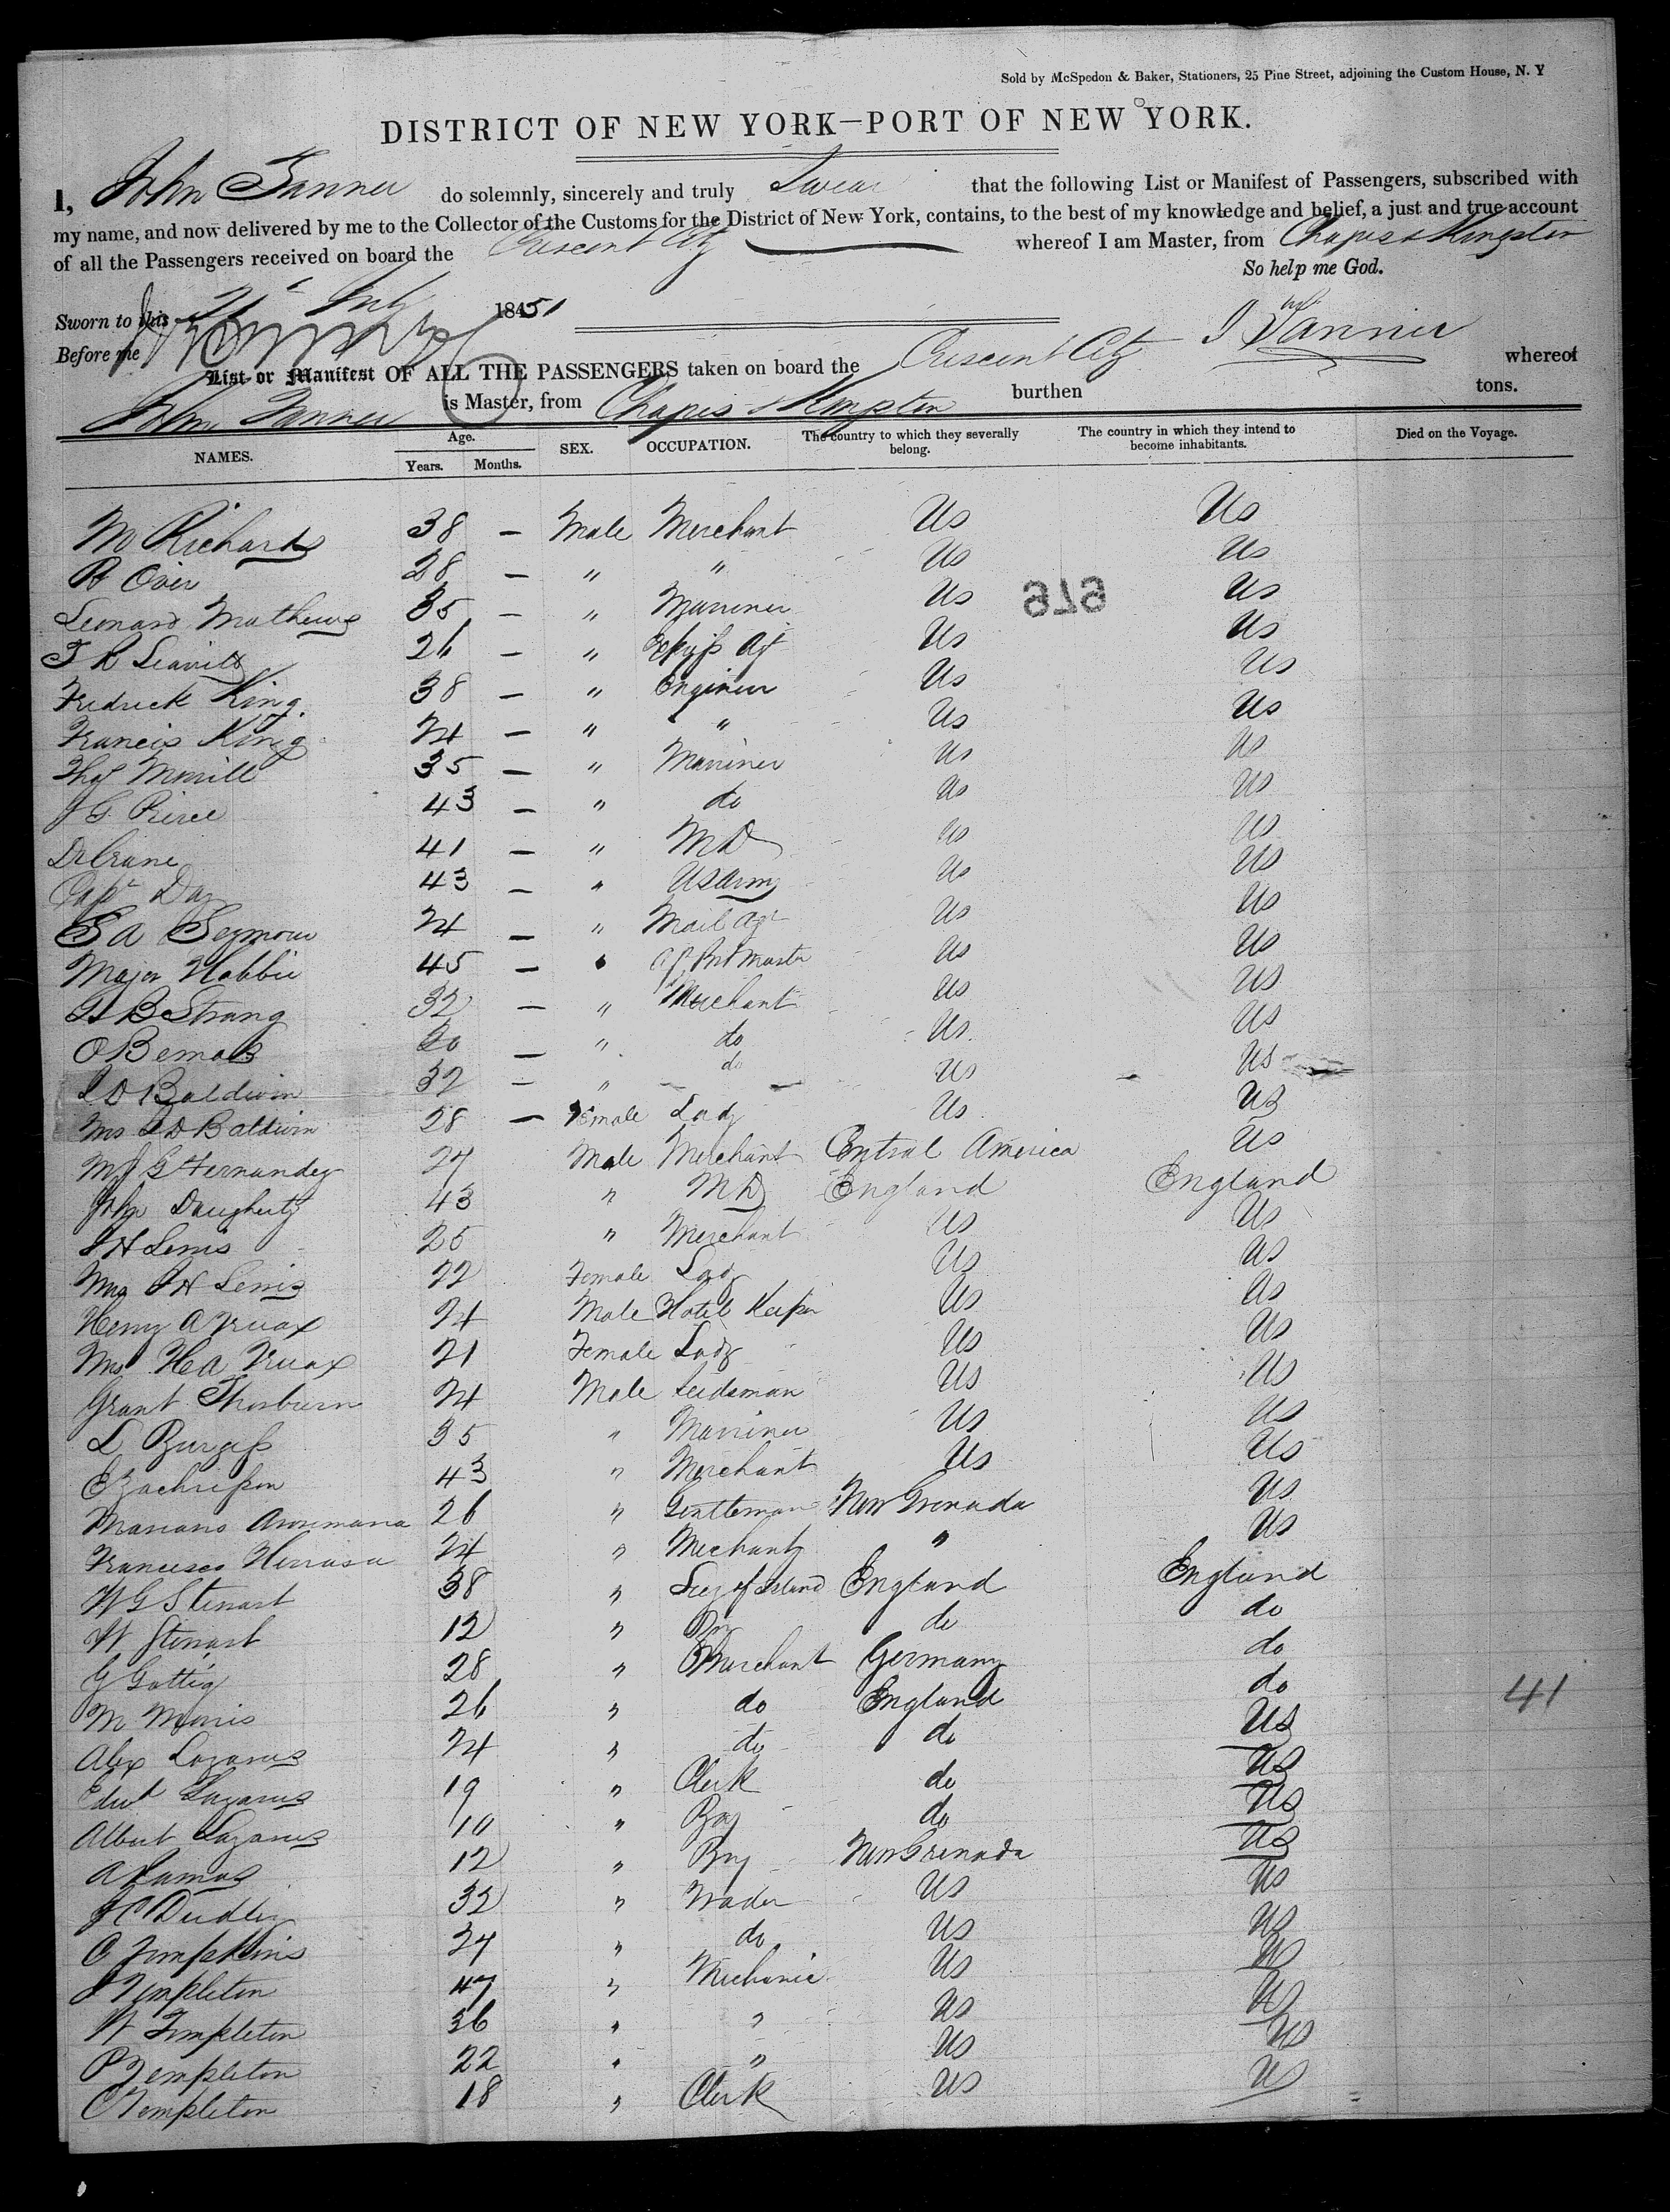 Sold by McSpedon & Baker, Stationers, 25 Pine Street, adjoining the Custom House, N. Y
DISTRICT OF NEW YORK—PORT OF NEW YORK.
I, John Tanner do solemnly, sincerely and truly Swear that the following List or Manifest of Passengers, subscribed with
my name, and now delivered by me to the Collector of the Customs for the District of New York, contains, to the best of my knowledge and belief, a just and true account
of all the Passengers received on board the Crescent City whereof I am Master, from Chagres & Kingston
So help me God.
Sworn to this 21 July 1851
J Tanner
Before me
List or Manifest OF ALL THE PASSENGERS taken on board the Crescent City whereof
John Tanner is Master, from Chagres & Kingston burthen tons.
NAMES. Age. Years. Months. SEX. OCCUPATION. The country to which they severally belong. The country in which they intend to become inhabitants. Died on the Voyage.
M Richards 38 — Male Merchant Us Us
R Oven 28 — " " Us Us
676
Leonard Mathews 35 — " Marriner Us Us
T R Leavitt 26 — " Us Us
Fredrick King 38 — " Engineer Us Us
Francis King 24 — " " Us Us
Thos Morrill 35 — " Marriner Us Us
J G Pierce 43 — " do Us Us
Dr Crane 41 — " MD Us Us
Capt Day 43 — " US Army Us Us
S A Seymour 24 — " Mail Agt Us Us
Major Hobbie 45 — " Post Master Us Us
B Strang 32 — " Merchant Us Us
O Bemas — " do Us Us
D Baldwin 32 — " do Us Us
Mrs D Baldwin 28 — Female Lady Us Us
G Fernandez 27 Male Merchant Central America Us
John Daugherty 43 " MD England England
J H Lewis 25 " Merchant Us Us
Mrs J H Lewis 22 Female Lady Us Us
Henry A Truax 24 Male Hotel Keeper Us Us
Mrs H A Truax 21 Female Lady Us Us
Grant Thorburn 24 Male Seedsman Us Us
L Burgess 35 " Marriner Us Us
E Zachrisson 43 " Merchant Us Us
Mariano Arosemana 26 " Gentleman New Grenada Us
Francisco 24 " Merchant " Us
W G Stewart 38 " Secy of Island England England
W Stewart 12 " Boy do do
G Gottig 28 " Merchant Germany do
M Morris 26 " do England do
41
Alex Lazarus 24 " do do Us
Edwd Lazarus 19 " Clerk do Us
Albert Lazarus 10 " Boy do Us
A Ramos 12 " Boy New Grenada Us
J C Dudley 32 " Trader Us Us
C Tompkins 27 " do Us Us
J Templeton 47 " Mechanic Us Us
W Templeton 36 " " Us Us
P Templeton 22 " " Us Us
C Templeton 18 " Clerk Us Us